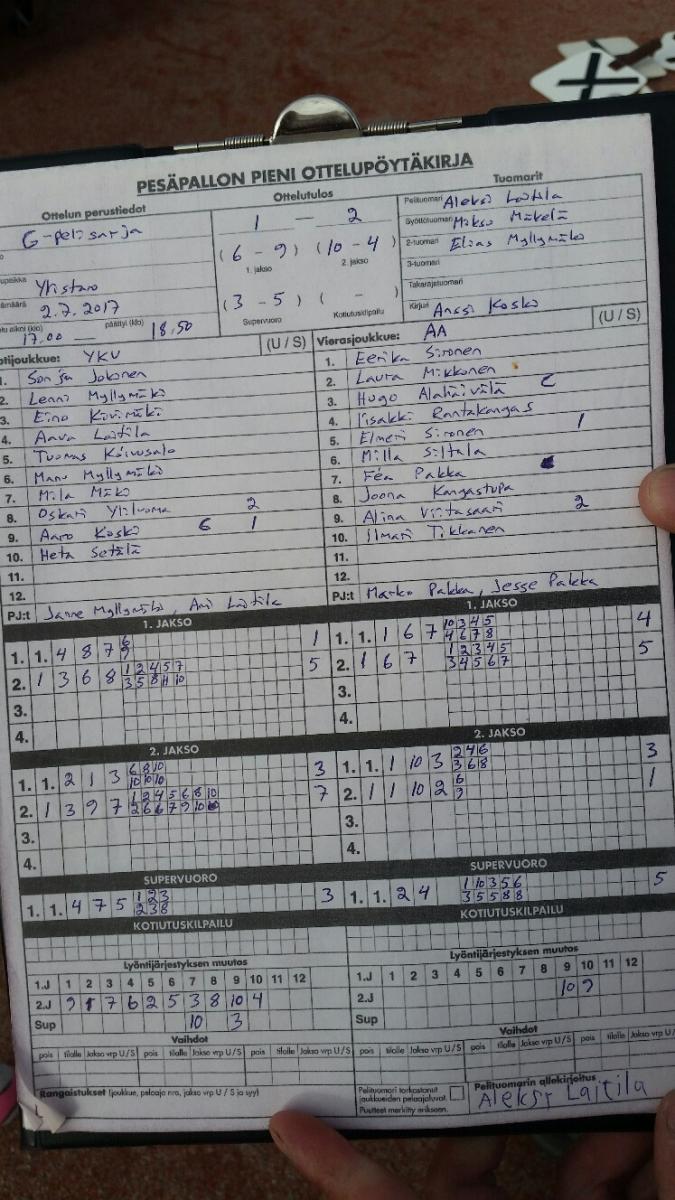 PESÄPALLON PIENI OTTELUPÖYTÄKIRJA
Ottelun perustiedot
Ottelutulos
Tuomarit
G-pelisarja
1 — 2
Pelituomari Aleksi Laitila
(6 - 9) (10 - 4)
Syöttötuomari Mikso Mäkelä
1. jakso 2. jakso
2-tuomari Elias Myllymäki
Ylistaro
3-tuomari
2.7.2017
(3 - 5) ( - )
Takarajatuomari
Supervuoro Kotiutuskilpailu
Kirjuri Anssi Koski
17.00 — päättyi (klo) 18.50
otijoukkue: YKV (U / S)
1. Sonja Jokonen
2. Lenni Myllymäki
3. Eino Kivimäki
4. Aava Laitila
5. Tuomas Koivusalo
6. Manu Myllymäki
7. Mila Mäki
8. Oskari Yliluoma 2
9. Aaro Koski 6 1
10. Heta Setälä
11.
12.
PJ:t Janne Myllymäki, Ari Laitila
Vierasjoukkue: AA (U / S)
1. Eerika Sironen
2. Laura Mikkonen
3. Hugo Alahäivälä 2
4. Iisakki Rantakangas
5. Elmeri Sironen 1
6. Milla Siltala
7. Féa Pakka
8. Joona Kangastupa
9. Alina Virtasaari 2
10. Ilmari Tikkanen
11.
12.
PJ:t Marko Pakka, Jesse Pakka
1. JAKSO
1. 1. 4 8 7 6 1
9
2. 1 3 6 8 1 2 4 5 7 5
3 5 8 11 10
3.
4.
1. JAKSO
1. 1. 1 6 7 10 3 4 5 4
4 6 7 8
2. 1 6 7 1 2 3 4 5 5
3 4 5 6 7
3.
4.
2. JAKSO
1. 1. 2 1 3 6 8 10 3
10 10 10
2. 1 3 9 7 1 2 4 5 6 8 10 7
2 6 6 7 9 10
3.
4.
2. JAKSO
1. 1. 1 10 3 2 4 6 3
3 6 8
2. 1 1 10 2 6 1
9
3.
4.
SUPERVUORO
1. 1. 4 7 5 1 2 3 3
2 3 8
SUPERVUORO
1. 1. 2 4 1 10 3 5 6 5
3 5 5 8 8
KOTIUTUSKILPAILU
KOTIUTUSKILPAILU
Lyöntijärjestyksen muutos
1.J 1 2 3 4 5 6 7 8 9 10 11 12
2.J 9 1 7 6 2 5 3 8 10 4
Sup 10 3
Lyöntijärjestyksen muutos
1.J 1 2 3 4 5 6 7 8 9 10 11 12
2.J 10 9
Sup
Vaihdot
pois tilalle Jakso vrp U/S pois tilalle Jakso vrp U/S pois tilalle Jakso vrp U/S
Vaihdot
pois tilalle Jakso vrp U/S pois tilalle Jakso vrp U/S pois tilalle Jakso vrp U/
Rangaistukset (joukkue, pelaaja nro, jakso vrp U / S ja syy)
Pelituomari tarkastanut
joukkueiden pelaajaluvat.
Puutteet merkitty erikseen.
Pelituomarin allekirjoitus
Aleksi Laitila